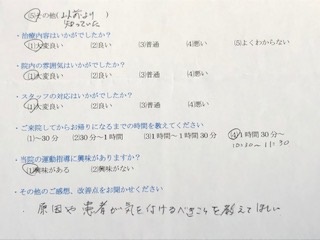 (5)その他(以前より
知っていた )
・治療内容はいかがでしたか?
(1)大変良い (2)良い (3)普通 (4)悪い (5)よくわからない
・院内の雰囲気はいかがでしたか?
(1)大変良い (2)良い (3)普通 (4)悪い
・スタッフの対応はいかがでしたか?
(1)大変良い (2)良い (3)普通 (4)悪い
・ご来院してからお帰りになるまでの時間を教えてください
(1)～30分 (2)30分～1時間 (3)1時間～1時間30分 (4)1時間30分～
10:10～11:30
・当院の運動指導に興味がありますか?
(1)興味がある (2)興味がない
・その他のご感想、改善点をお聞かせください
・原因や患者が気を付けるべきことを教えてほしい